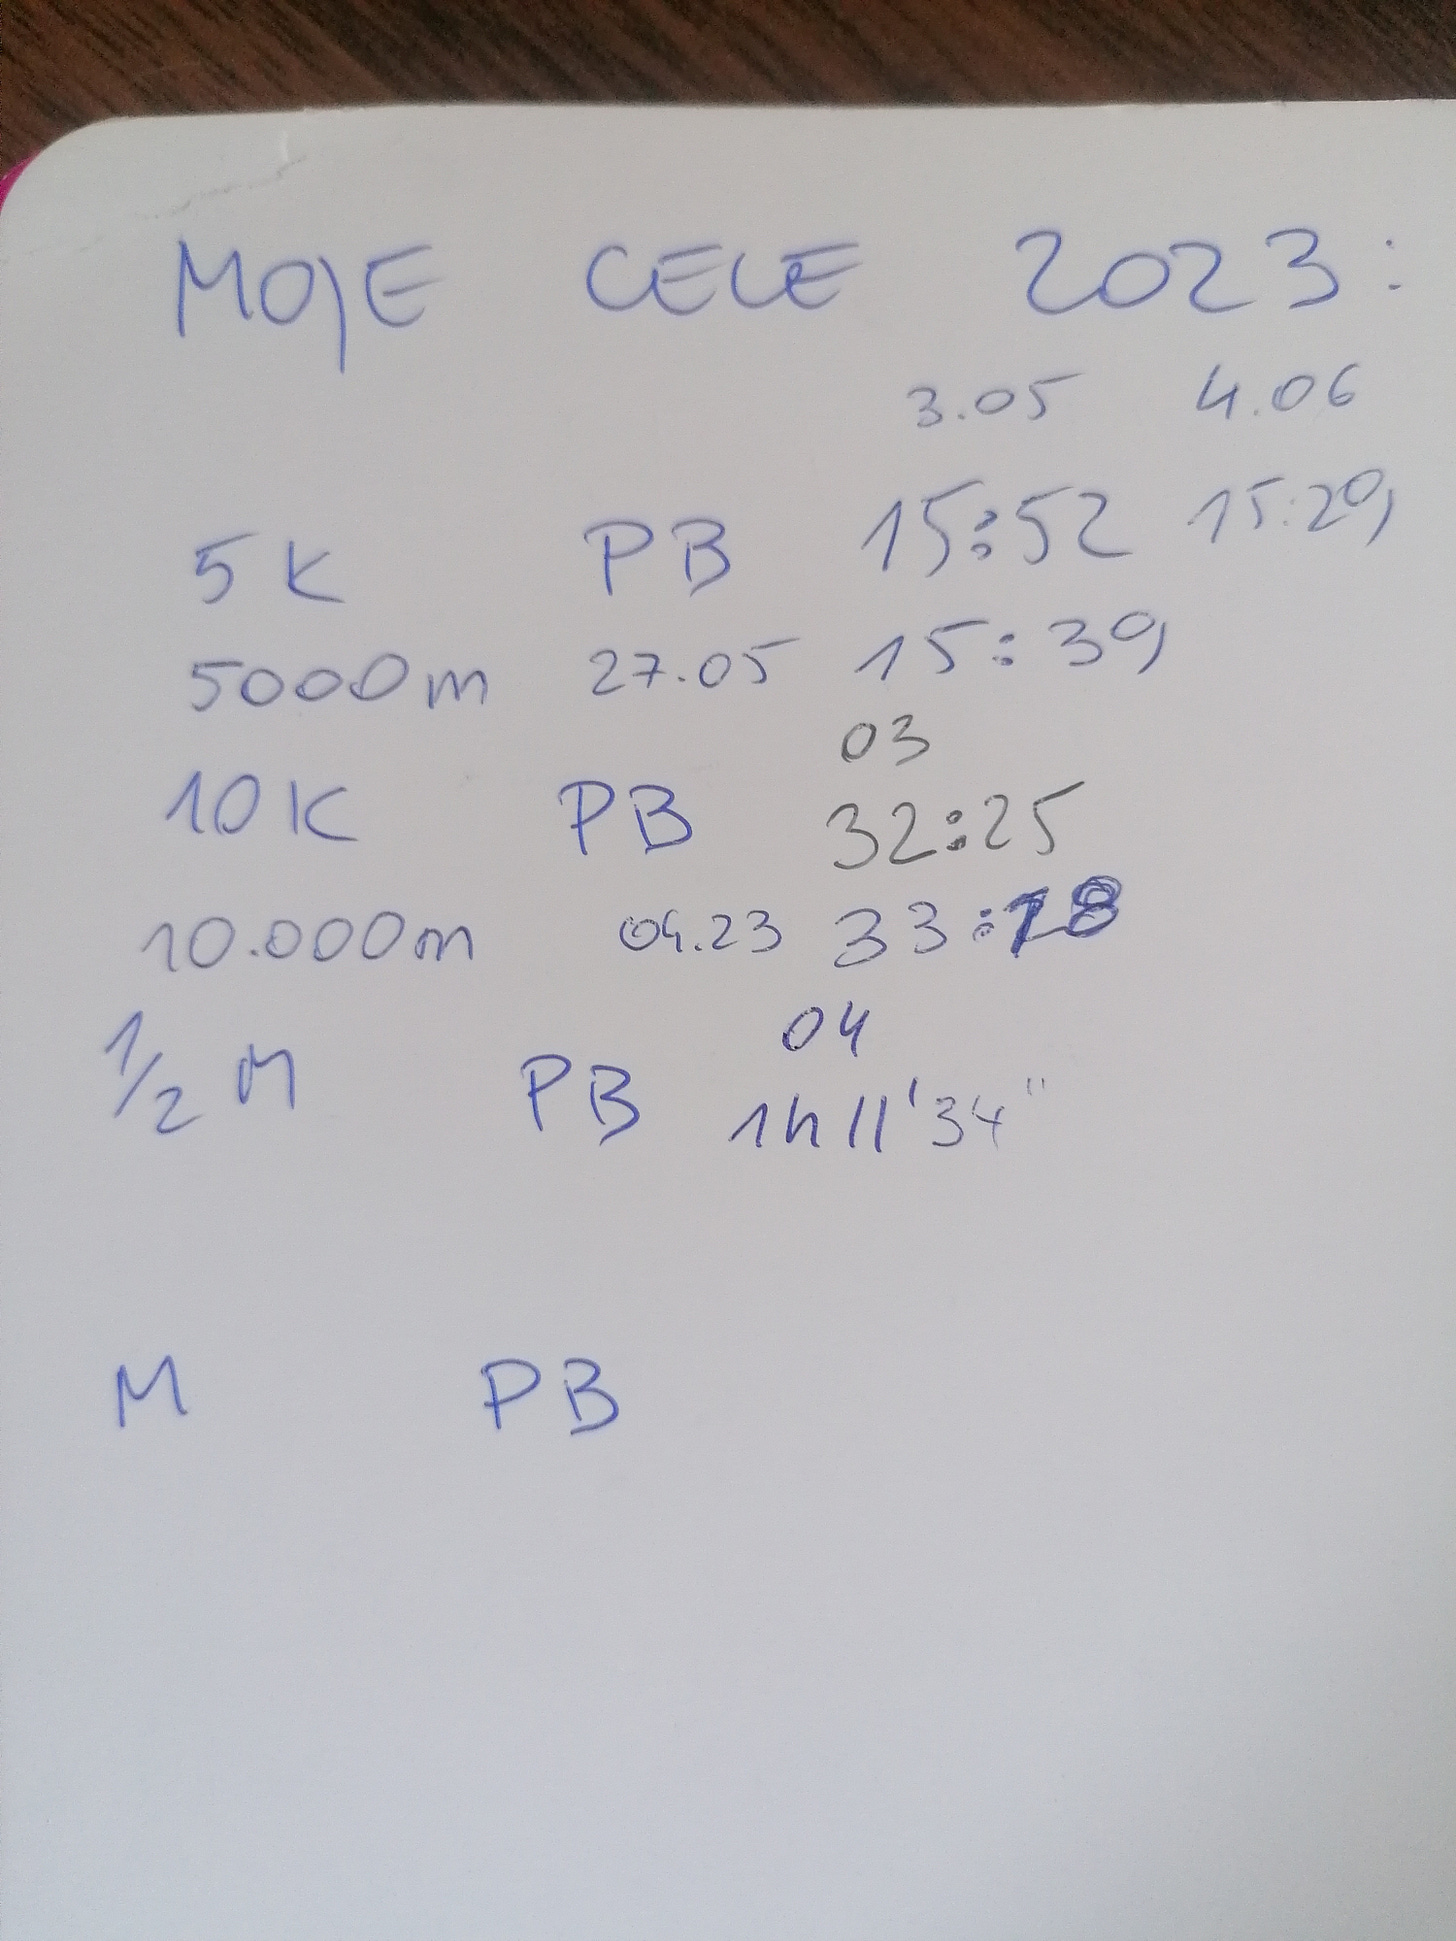 MOJE CELE 2023:
3.05 4.06
5K PB 15:52 15:29
5000m 27.05 15:39
03
10K PB 32:25
10.000m 04.23 33:18
04
1/2 M PB 1h11'34"
M PB